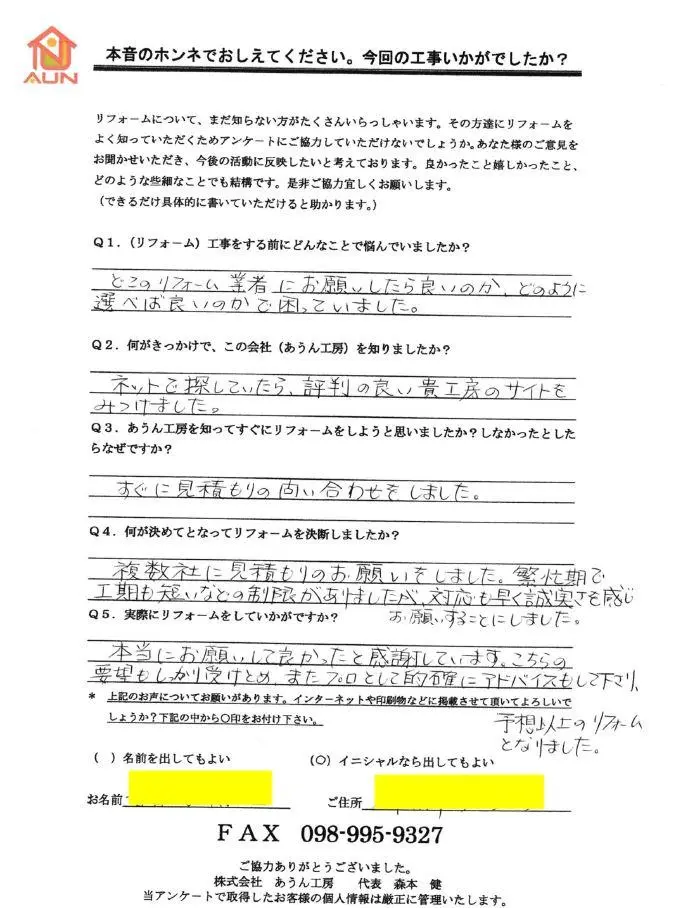 AUN
本音のホンネでおしえてください。今回の工事いかがでしたか？
リフォームについて、まだ知らない方がたくさんいらっしゃいます。その方達にリフォームを
よく知っていただくためアンケートにご協力していただけないでしょうか。あなた様のご意見を
お聞かせいただき、今後の活動に反映したいと考えております。良かったこと嬉しかったこと、
どのような些細なことでも結構です。是非ご協力宜しくお願いします。
（できるだけ具体的に書いていただけると助かります。）
Q１．（リフォーム）工事をする前にどんなことで悩んでいましたか？
どこのリフォーム業者にお願いしたら良いのか、どのように
選べば良いのかで困っていました。
Q２．何がきっかけで、この会社（あうん工房）を知りましたか？
ネットで探していたら、評判の良い貴工房のサイトを
みつけました。
Q３．あうん工房を知ってすぐにリフォームをしようと思いましたか？しなかったとした
らなぜですか？
すぐに見積もりの問い合わせをしました。
Q４．何が決めてとなってリフォームを決断しましたか？
複数社に見積もりのお願いをしました。繁忙期で
工期も短いなどの制限がありましたが、対応も早く誠実さを感じ
お願いすることにしました。
Q５．実際にリフォームをしていかがですか？
本当にお願いして良かったと感謝しています。こちらの
要望もしっかり受けとめ、またプロとして的確にアドバイスもして下さり、
予想以上のリフォーム
となりました。
* 上記のお声についてお願いがあります。インターネットや印刷物などに掲載させて頂いてよろしいで
しょうか？下記の中から〇印をお付け下さい。
（ ）名前を出してもよい （O）イニシャルなら出してもよい
お名前 ご住所
ＦＡＸ 098-995-9327
ご協力ありがとうございました。
株式会社 あうん工房 代表 森本 健
当アンケートで取得したお客様の個人情報は厳正に管理いたします。